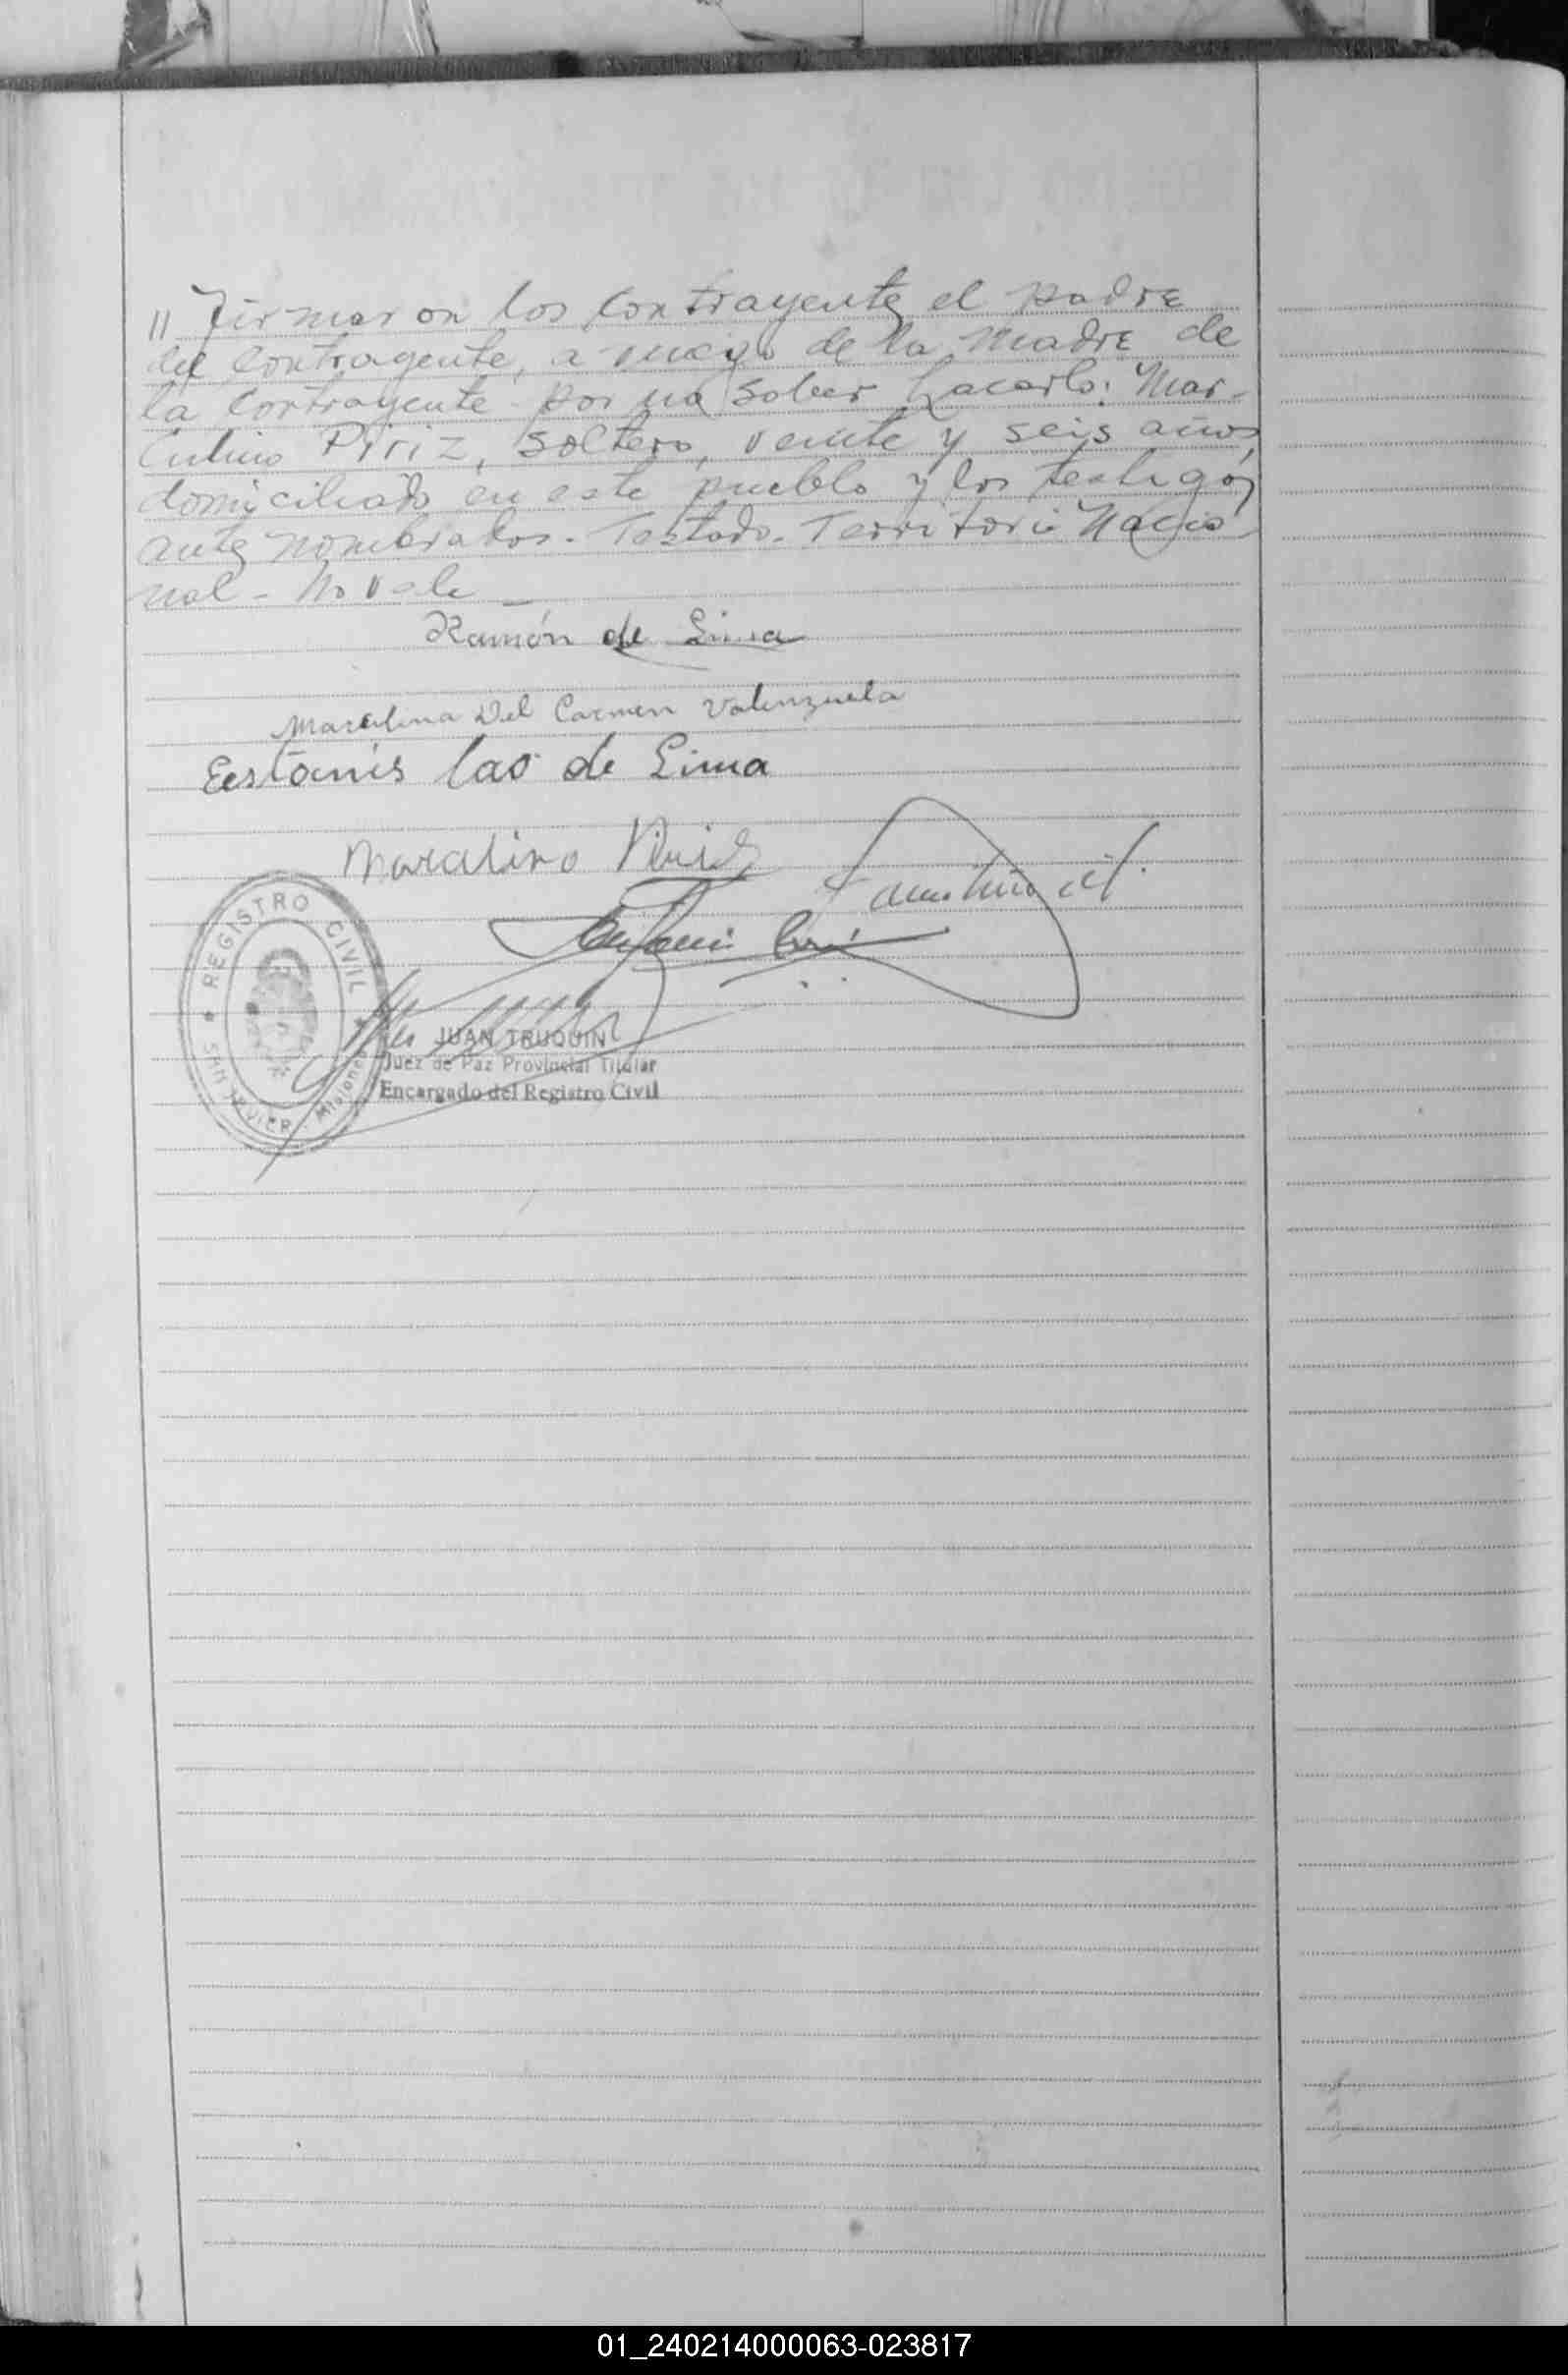 11 Firmaron los contrayente, el padre
del contrayente, a ruego de la madre de
la contrayente por no saber hacerlo: Mar-
celino Piriz, soltero, veinte y seis años,
domiciliado en este pueblo y los testigos
ante nombrados. Testado. Territorio Nacio-
nal - No vale
Ramón de Lima
Marcelina Del Carmen Valenzuela
Eestanis lao de Lima
Marcelino Piriz
REGISTRO CIVIL
SAN JAVIER - Misiones
JUAN TRUQUIN
Juez de Paz Provincial Titular
Encargado del Registro Civil
01_240214000063-023817